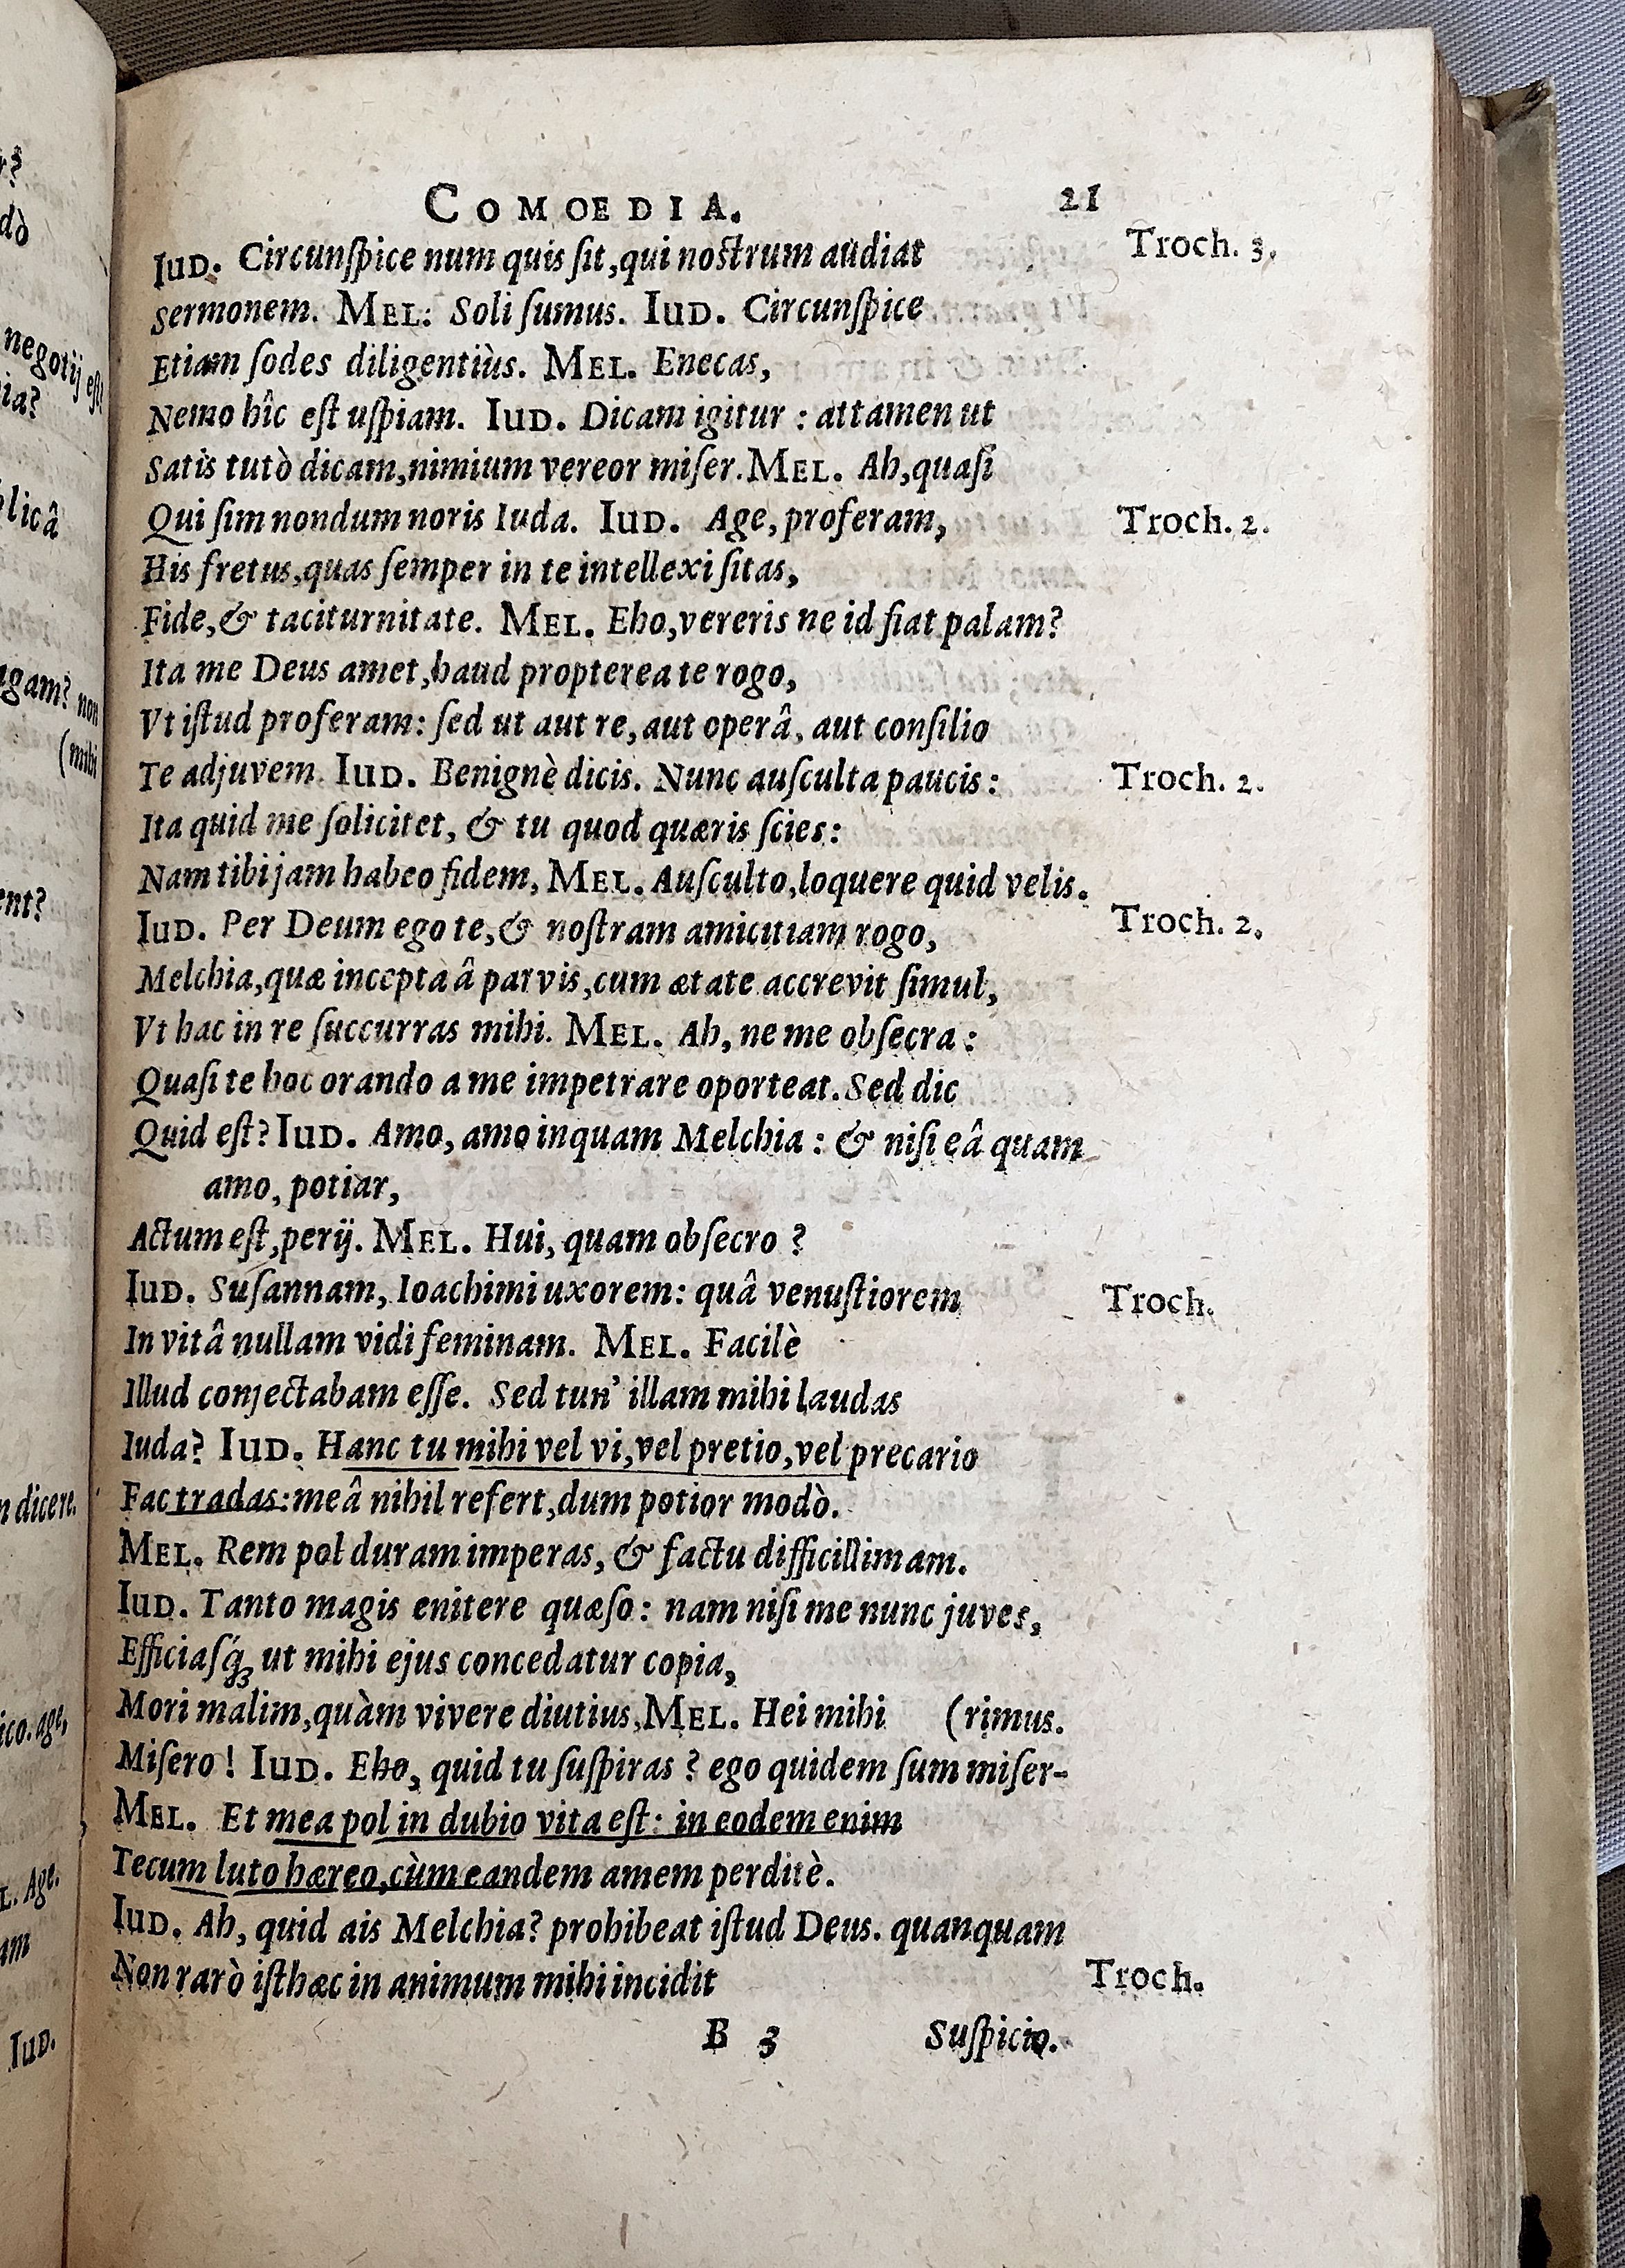 COMOEDIA. 21
IUD. Circunſpice num quis ſit, qui noſtrum audiat Troch. 3.
Sermonem. MEL: Soli ſumus. IUD. Circunſpice
Etiam ſodes diligentiùs. MEL. Enecas,
Nemo hîc eſt uſpiam. IUD. Dicam igitur : attamen ut
Satis tutò dicam, nimium vereor miſer. MEL. Ah, quaſi
Qui ſim nondum noris Iuda. IUD. Age, proferam, Troch. 2.
His fretus, quas ſemper in te intellexi ſitas,
Fide, & taciturnitate. MEL. Eho, vereris ne id fiat palam?
Ita me Deus amet, haud propterea te rogo,
Vt iſtud proferam: ſed ut aut re, aut operâ, aut conſilio
Te adjuvem. IUD. Benignè dicis. Nunc auſculta paucis: Troch. 2.
Ita quid me ſolicitet, & tu quod quæris ſcies:
Nam tibi jam habeo fidem, MEL. Auſculto, loquere quid velis.
IUD. Per Deum ego te, & noſtram amicitiam rogo, Troch. 2.
Melchia, quæ incepta â parvis, cum ætate accrevit ſimul,
Vt hac in re ſuccurras mihi. MEL. Ah, ne me obſecra :
Quaſi te hoc orando a me impetrare oporteat. Sed dic
Quid eſt? IUD. Amo, amo inquam Melchia : & niſi eâ quam
amo, potiar,
Actum eſt, perij. MEL. Hui, quam obſecro ?
IUD. Suſannam, Ioachimi uxorem: quâ venuſtiorem Troch.
In vitâ nullam vidi feminam. MEL. Facilè
Illud conjectabam eſſe. Sed tun' illam mihi laudas
Iuda? IUD. Hanc tu mihi vel vi, vel pretio, vel precario
Fac tradas: meâ nihil refert, dum potior modò.
MEL. Rem pol duram imperas, & factu difficillimam.
IUD. Tanto magis enitere quæſo : nam niſi me nunc juves,
Efficiaſq́ꝫ ut mihi ejus concedatur copia,
Mori malim, quàm vivere diutius, MEL. Hei mihi (rimus.
Miſero ! IUD. Eho, quid tu ſuſpiras ? ego quidem ſum miſer-
MEL. Et mea pol in dubio vita eſt: in eodem enim
Tecum luto hæreo, cùm eandem amem perditè.
IUD. Ah, quid ais Melchia? prohibeat iſtud Deus. quanquam
Non rarò iſthæc in animum mihi incidit Troch.
B 3 Suſpicio.
negotij eſt
ia?
licâ
igam? non
(mihi
ent?
n dicere.
ico. age,
L. Age.
am
IUD.